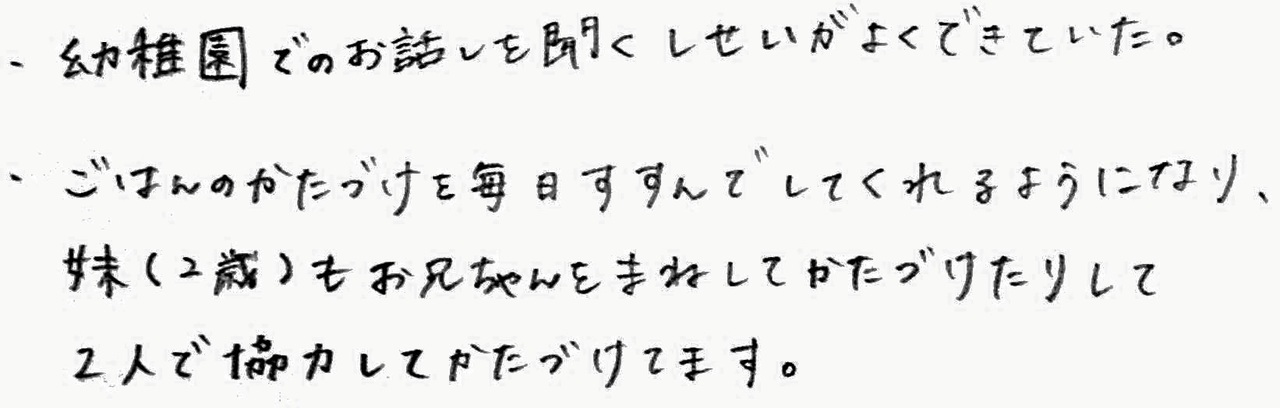 ・幼稚園でのお話しを聞くしせいがよくできていた。
・ごはんのかたづけを毎日すすんでしてくれるようになり、
妹(2歳)もお兄ちゃんをまねしてかたづけたりして
2人で協力してかたづけてます。